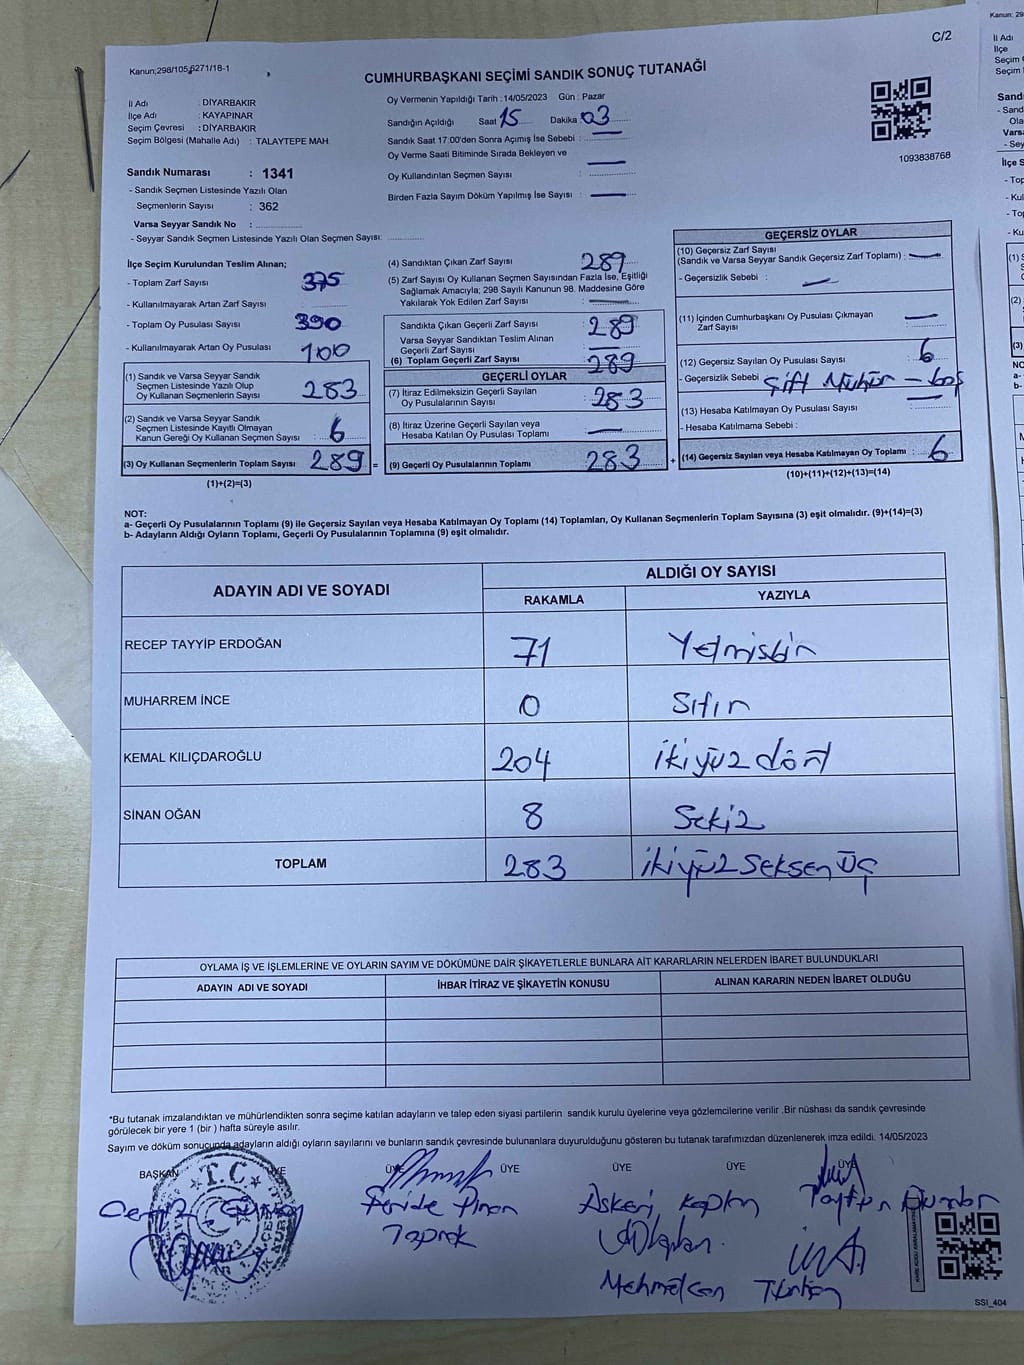 C/2
Kanun;298/105,6271/18-1
CUMHURBAŞKANI SEÇİMİ SANDIK SONUÇ TUTANAĞI
İl Adı : DİYARBAKIR
İlçe Adı : KAYAPINAR
Seçim Çevresi : DİYARBAKIR
Seçim Bölgesi (Mahalle Adı) : TALAYTEPE MAH
Oy Vermenin Yapıldığı Tarih :14/05/2023 Gün : Pazar
Sandığın Açıldığı Saat 15 Dakika :03
Sandık Saat 17:00'den Sonra Açımış İse Sebebi : —
Oy Verme Saati Bitiminde Sırada Bekleyen ve
Oy Kullandırılan Seçmen Sayısı : —
Birden Fazla Sayım Döküm Yapılmış İse Sayısı : —
1093838768
Sandık Numarası : 1341
- Sandık Seçmen Listesinde Yazılı Olan
Seçmenlerin Sayısı : 362
Varsa Seyyar Sandık No :
- Seyyar Sandık Seçmen Listesinde Yazılı Olan Seçmen Sayısı:
İlçe Seçim Kurulundan Teslim Alınan;
- Toplam Zarf Sayısı : 375
- Kullanılmayarak Artan Zarf Sayısı :
- Toplam Oy Pusulası Sayısı : 390
- Kullanılmayarak Artan Oy Pusulası : 100
(1) Sandık ve Varsa Seyyar Sandık
Seçmen Listesinde Yazılı Olup
Oy Kullanan Seçmenlerin Sayısı : 283
(2) Sandık ve Varsa Seyyar Sandık
Seçmen Listesinde Kayıtlı Olmayan
Kanun Gereği Oy Kullanan Seçmen Sayısı : 6
(3) Oy Kullanan Seçmenlerin Toplam Sayısı : 289 =
(1)+(2)=(3)
(4) Sandıktan Çıkan Zarf Sayısı : 289
(5) Zarf Sayısı Oy Kullanan Seçmen Sayısından Fazla İse, Eşitliği
Sağlamak Amacıyla; 298 Sayılı Kanunun 98. Maddesine Göre
Yakılarak Yok Edilen Zarf Sayısı : —
Sandıkta Çıkan Geçerli Zarf Sayısı : 289
Varsa Seyyar Sandıktan Teslim Alınan
Geçerli Zarf Sayısı : —
(6) Toplam Geçerli Zarf Sayısı : 289
GEÇERLİ OYLAR
(7) İtiraz Edilmeksizin Geçerli Sayılan
Oy Pusulalarının Sayısı : 283
(8) İtiraz Üzerine Geçerli Sayılan veya
Hesaba Katılan Oy Pusulası Toplamı : —
(9) Geçerli Oy Pusulalarının Toplamı : 283 +
GEÇERSİZ OYLAR
(10) Geçersiz Zarf Sayısı
(Sandık ve Varsa Seyyar Sandık Geçersiz Zarf Toplamı) : —
- Geçersizlik Sebebi : —
(11) İçinden Cumhurbaşkanı Oy Pusulası Çıkmayan
Zarf Sayısı : —
(12) Geçersiz Sayılan Oy Pusulası Sayısı : 6
- Geçersizlik Sebebi : Çift Mühür - boş
(13) Hesaba Katılmayan Oy Pusulası Sayısı : —
- Hesaba Katılmama Sebebi :
(14) Geçersiz Sayılan veya Hesaba Katılmayan Oy Toplamı : 6
(10)+(11)+(12)+(13)=(14)
NOT:
a- Geçerli Oy Pusulalarının Toplamı (9) ile Geçersiz Sayılan veya Hesaba Katılmayan Oy Toplamı (14) Toplamları, Oy Kullanan Seçmenlerin Toplam Sayısına (3) eşit olmalıdır. (9)+(14)=(3)
b- Adayların Aldığı Oyların Toplamı, Geçerli Oy Pusulalarının Toplamına (9) eşit olmalıdır.
ADAYIN ADI VE SOYADI ALDIĞI OY SAYISI
RAKAMLA YAZIYLA
RECEP TAYYİP ERDOĞAN 71 Yetmişbir
MUHARREM İNCE 0 Sıfır
KEMAL KILIÇDAROĞLU 204 ikiyüz dört
SİNAN OĞAN 8 Sekiz
TOPLAM 283 ikiyüz Seksen üç
OYLAMA İŞ VE İŞLEMLERİNE VE OYLARIN SAYIM VE DÖKÜMÜNE DAİR ŞİKAYETLERLE BUNLARA AİT KARARLARIN NELERDEN İBARET BULUNDUKLARI
ADAYIN ADI VE SOYADI İHBAR İTİRAZ VE ŞİKAYETİN KONUSU ALINAN KARARIN NEDEN İBARET OLDUĞU
*Bu tutanak imzalandıktan ve mühürlendikten sonra seçime katılan adayların ve talep eden siyasi partilerin sandık kurulu üyelerine veya gözlemcilerine verilir .Bir nüshası da sandık çevresinde
görülecek bir yere 1 (bir ) hafta süreyle asılır.
Sayım ve döküm sonucunda adayların aldığı oyların sayılarını ve bunların sandık çevresinde bulunanlara duyurulduğunu gösteren bu tutanak tarafımızdan düzenlenerek imza edildi. 14/05/2023
BAŞKAN ÜYE ÜYE ÜYE ÜYE ÜYE ÜYE
T.C.
Feride Pınar Askeri Kaplan Tayfun
Toprak
Mehmetcan
SSI_404